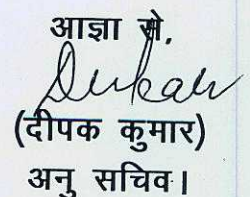 आज्ञा से,
(दीपक कुमार)
अनु सचिव।